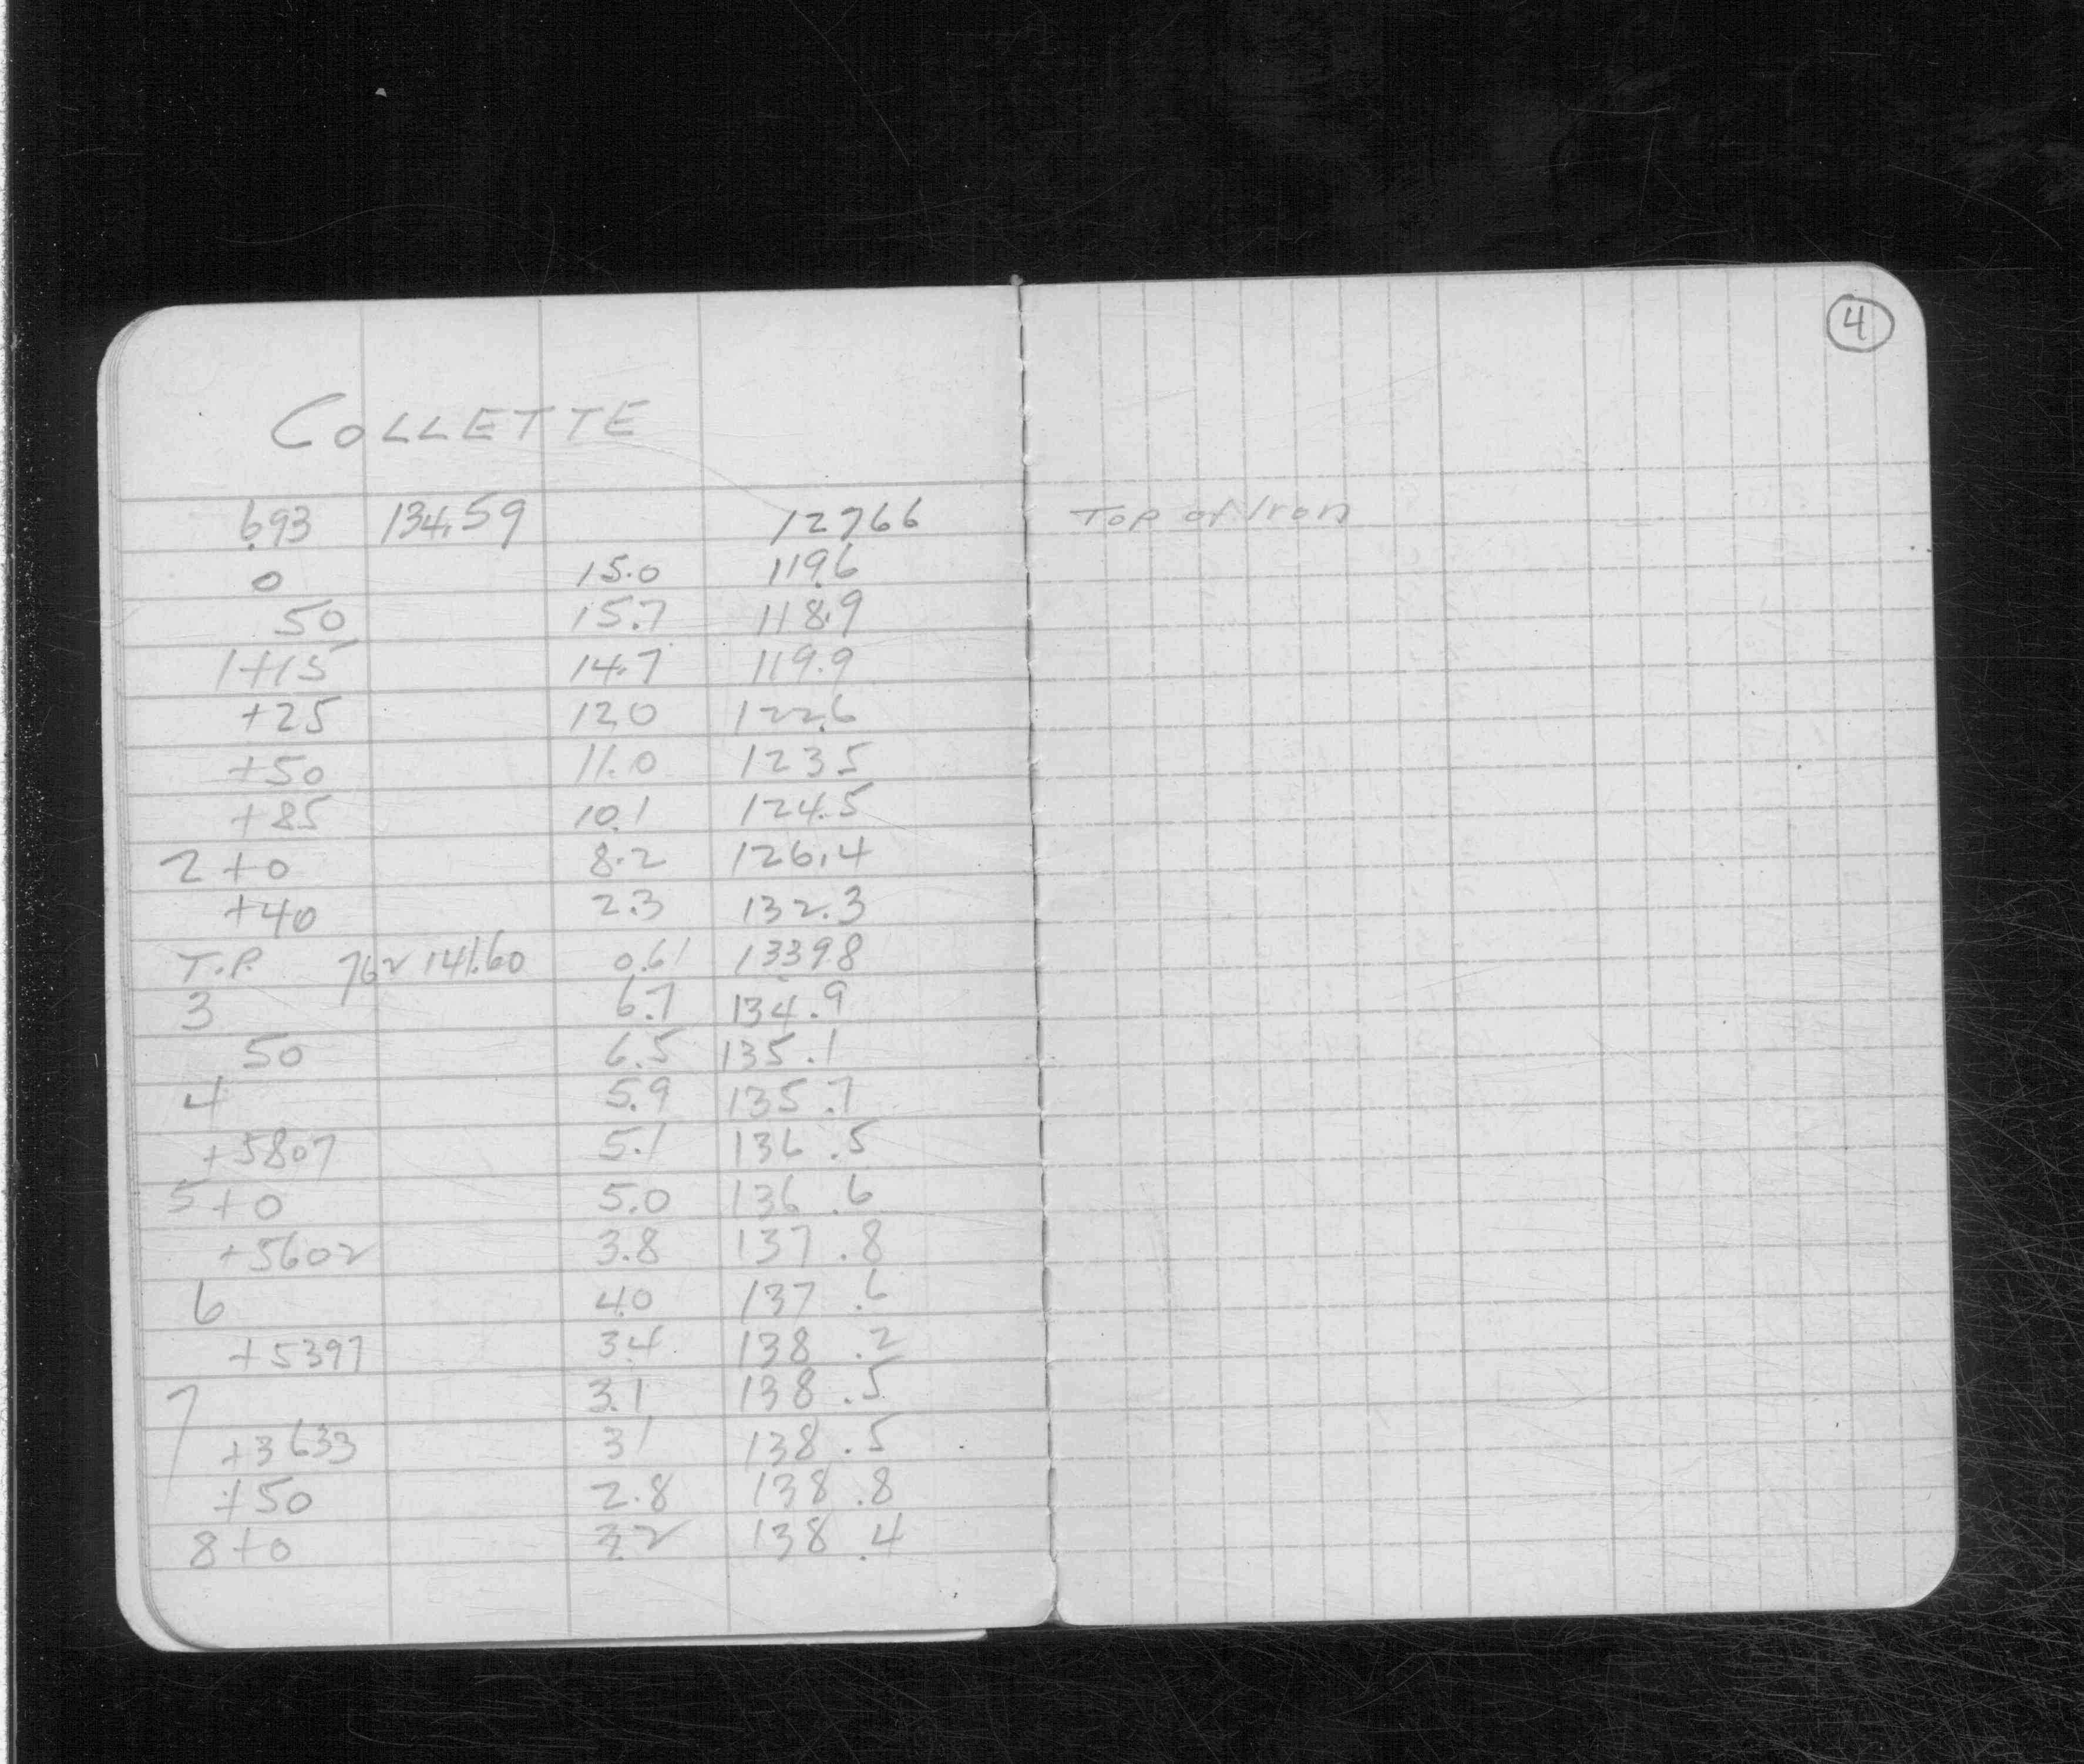 4
COLLETTE
6.93 134.59 127.66 Top of Iron
0 15.0 119.6
50 15.7 118.9
1+15 14.7 119.9
+25 12.0 122.6
+50 11.0 123.5
+85 10.1 124.5
2+0 8.2 126.4
+40 2.3 132.3
T.P. 762 141.60 0.61 133.98
3 6.7 134.9
50 6.5 135.1
4 5.9 135.7
+5807 5.1 136.5
5+0 5.0 136.6
+5602 3.8 137.8
6 4.0 137.6
+5397 3.4 138.2
7 3.1 138.5
+3633 31 138.5
+50 2.8 138.8
8+0 3.2 138.4